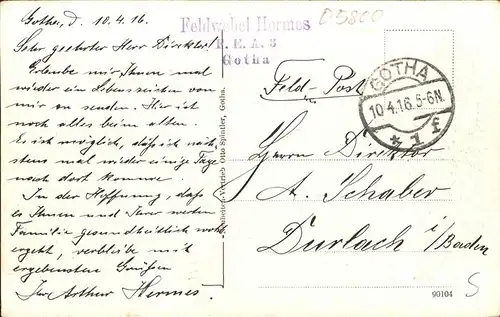 Gotha, d. 10.4.16.
Sehr geehrter Herr Direktor!
Erlaube mir Ihnen mal
wieder ein Lebenszeichen von
mir zu senden. Hier ist
noch alles beim alten.
Es ist möglich, daß ich näch
stens mal wieder einige Tage
nach dort komme.
In der Hoffnung, daß
es Ihnen und Ihrer werten
Familie gesundheitlich wohl
ergeht, verbleibe mit
ergebensten Grüßen
Ihr Arthur Hermes.
Feldwebel Hermes
F. E. A. 3
Gotha
05800
GOTHA
10.4.16.5-6N.
* 1 f
Feld-Post
Herrn Direktor
A. Schaber
Durlach i/Baden
Neuheiten-Vertrieb Otto Spindler, Gotha.
90104
S